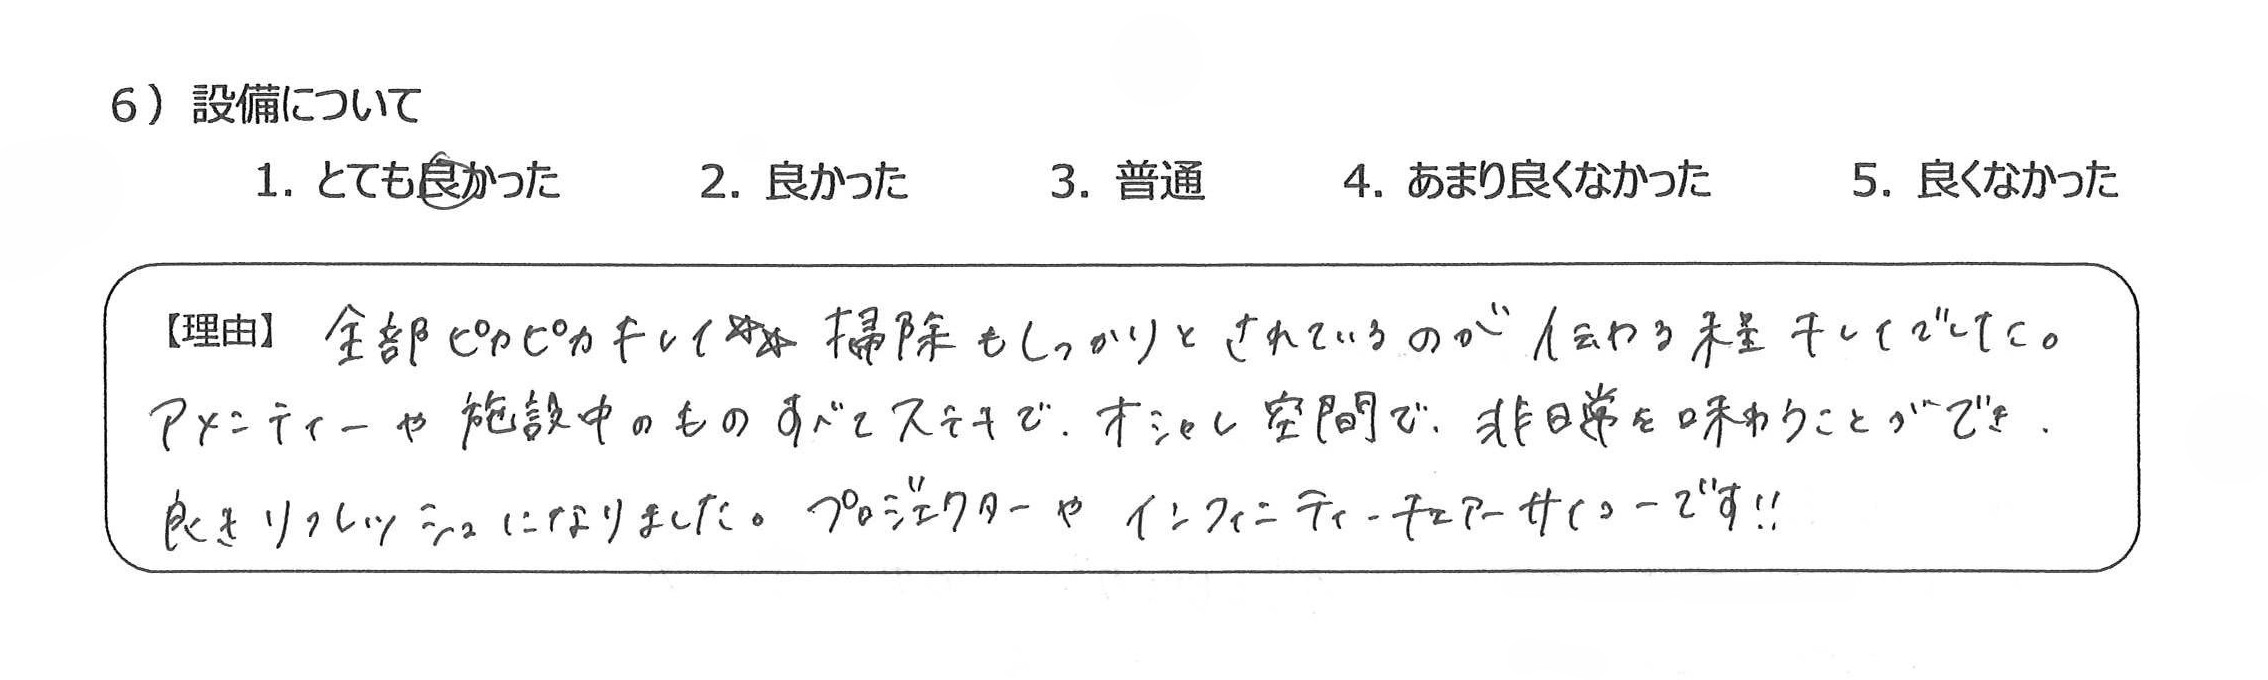 6）設備について
1. とても良かった 2. 良かった 3. 普通 4. あまり良くなかった 5. 良くなかった
【理由】 全部ピカピカキレイ☆☆ 掃除もしっかりとされているのが伝わる程キレイでした。
アメニティーや施設中のものすべてステキで、オシャレ空間で、非日常を味わうことができ、
良きリフレッシュになりました。プロジェクターやインフィニティーチェアーサイコーです!!